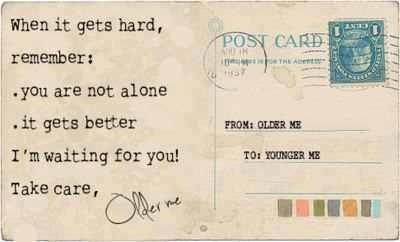 When it gets hard,
remember:
.you are not alone
.it gets better
I'm waiting for you!
Take care,
Older me
POST CARD
FROM: OLDER ME
TO: YOUNGER ME
1 1